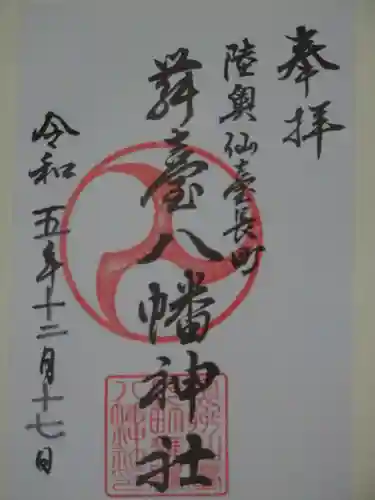 奉拝
陸奥仙臺長町
舞臺八幡神社
令和五年十二月十七日